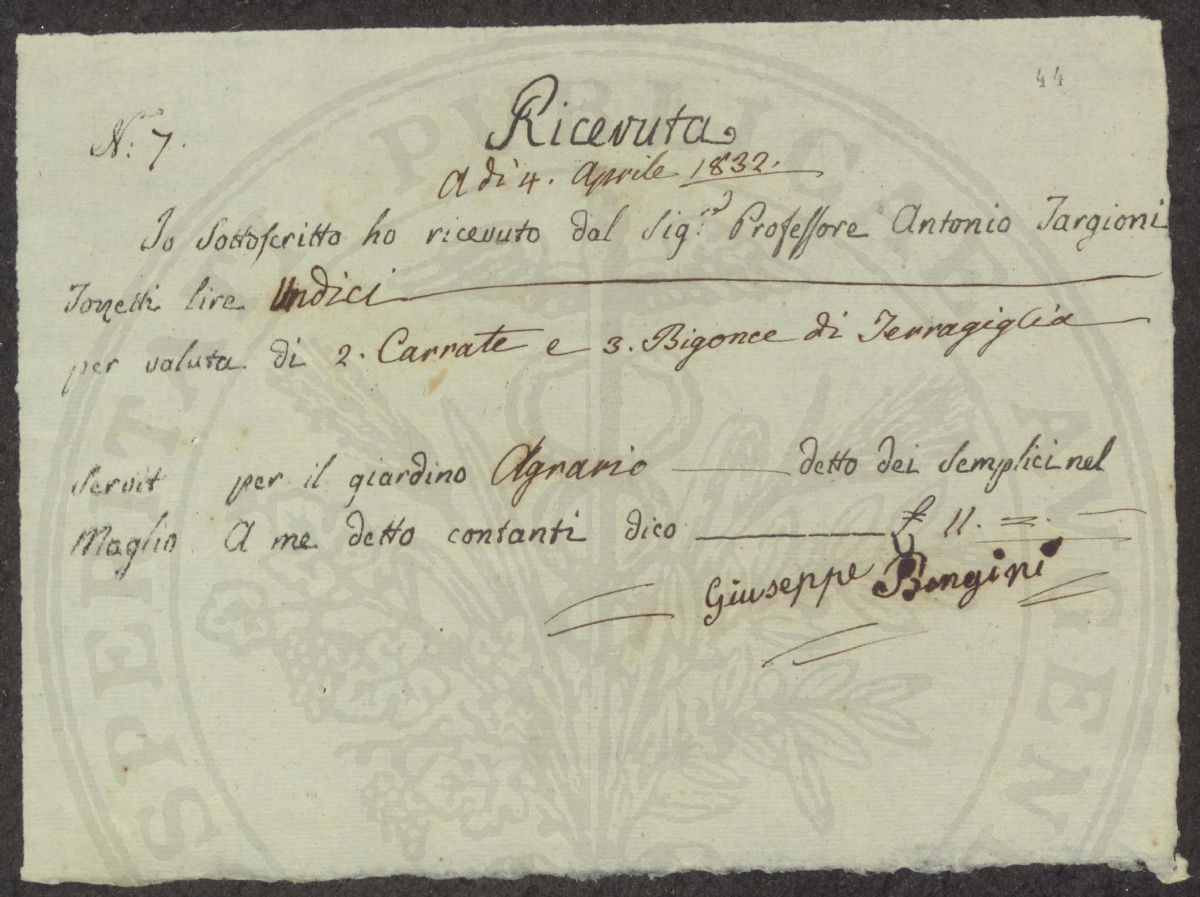 44
N: 7.
Ricevuta
A di 4. Aprile 1832.
Io Sottoscritto ho ricevuto dal Sig.re Professore Antonio Targioni
Tozzetti lire Undici
per valuta di 2. Carrate e 3. Bigonce di Terragiglia
Servit per il giardino Agrario detto dei Semplici nel
Maglio A me detto contanti dico £ 11. =.
Giuseppe Bongini
PUBLICAE AUGEN
SPERITAT